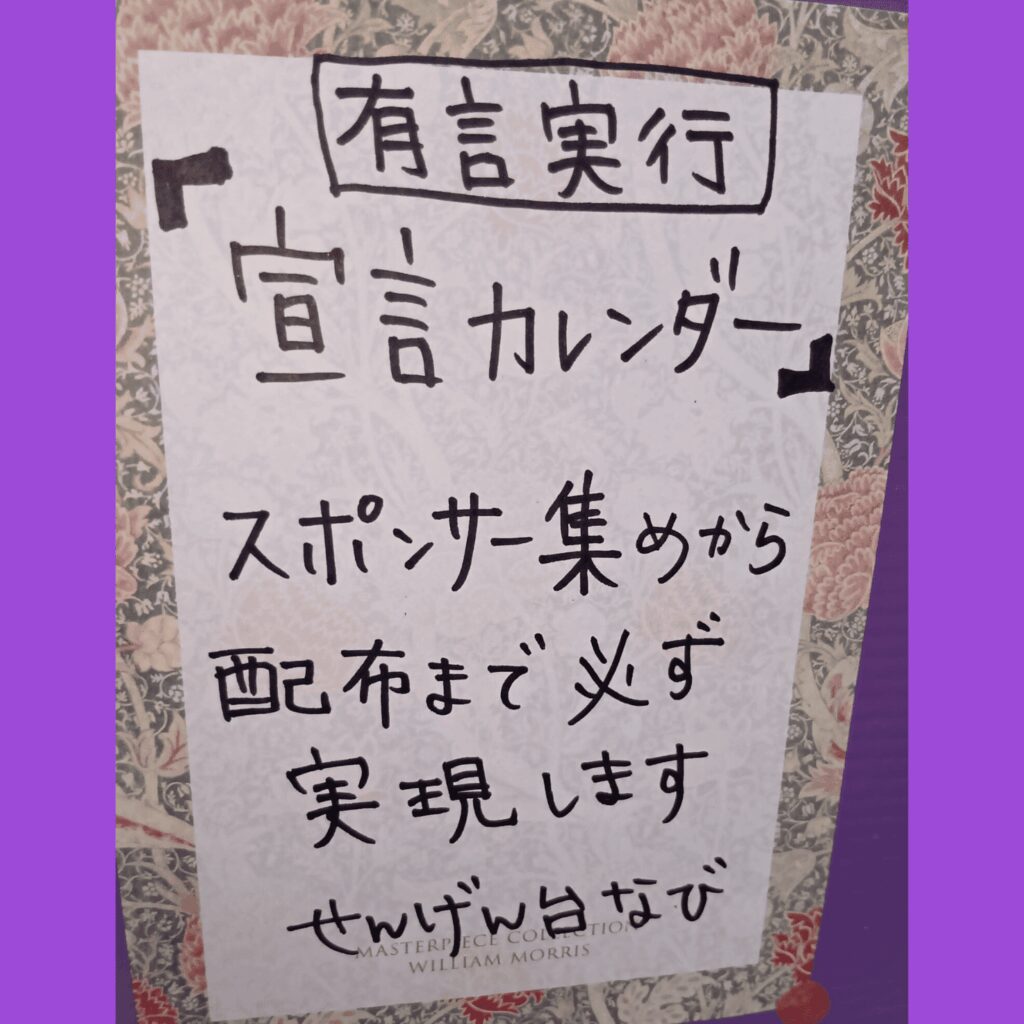 有言実行
『宣言カレンダー』
スポンサー集めから
配布まで必ず
実現します
せんげん台なび
MASTERPIECE COLLECTION
WILLIAM MORRIS